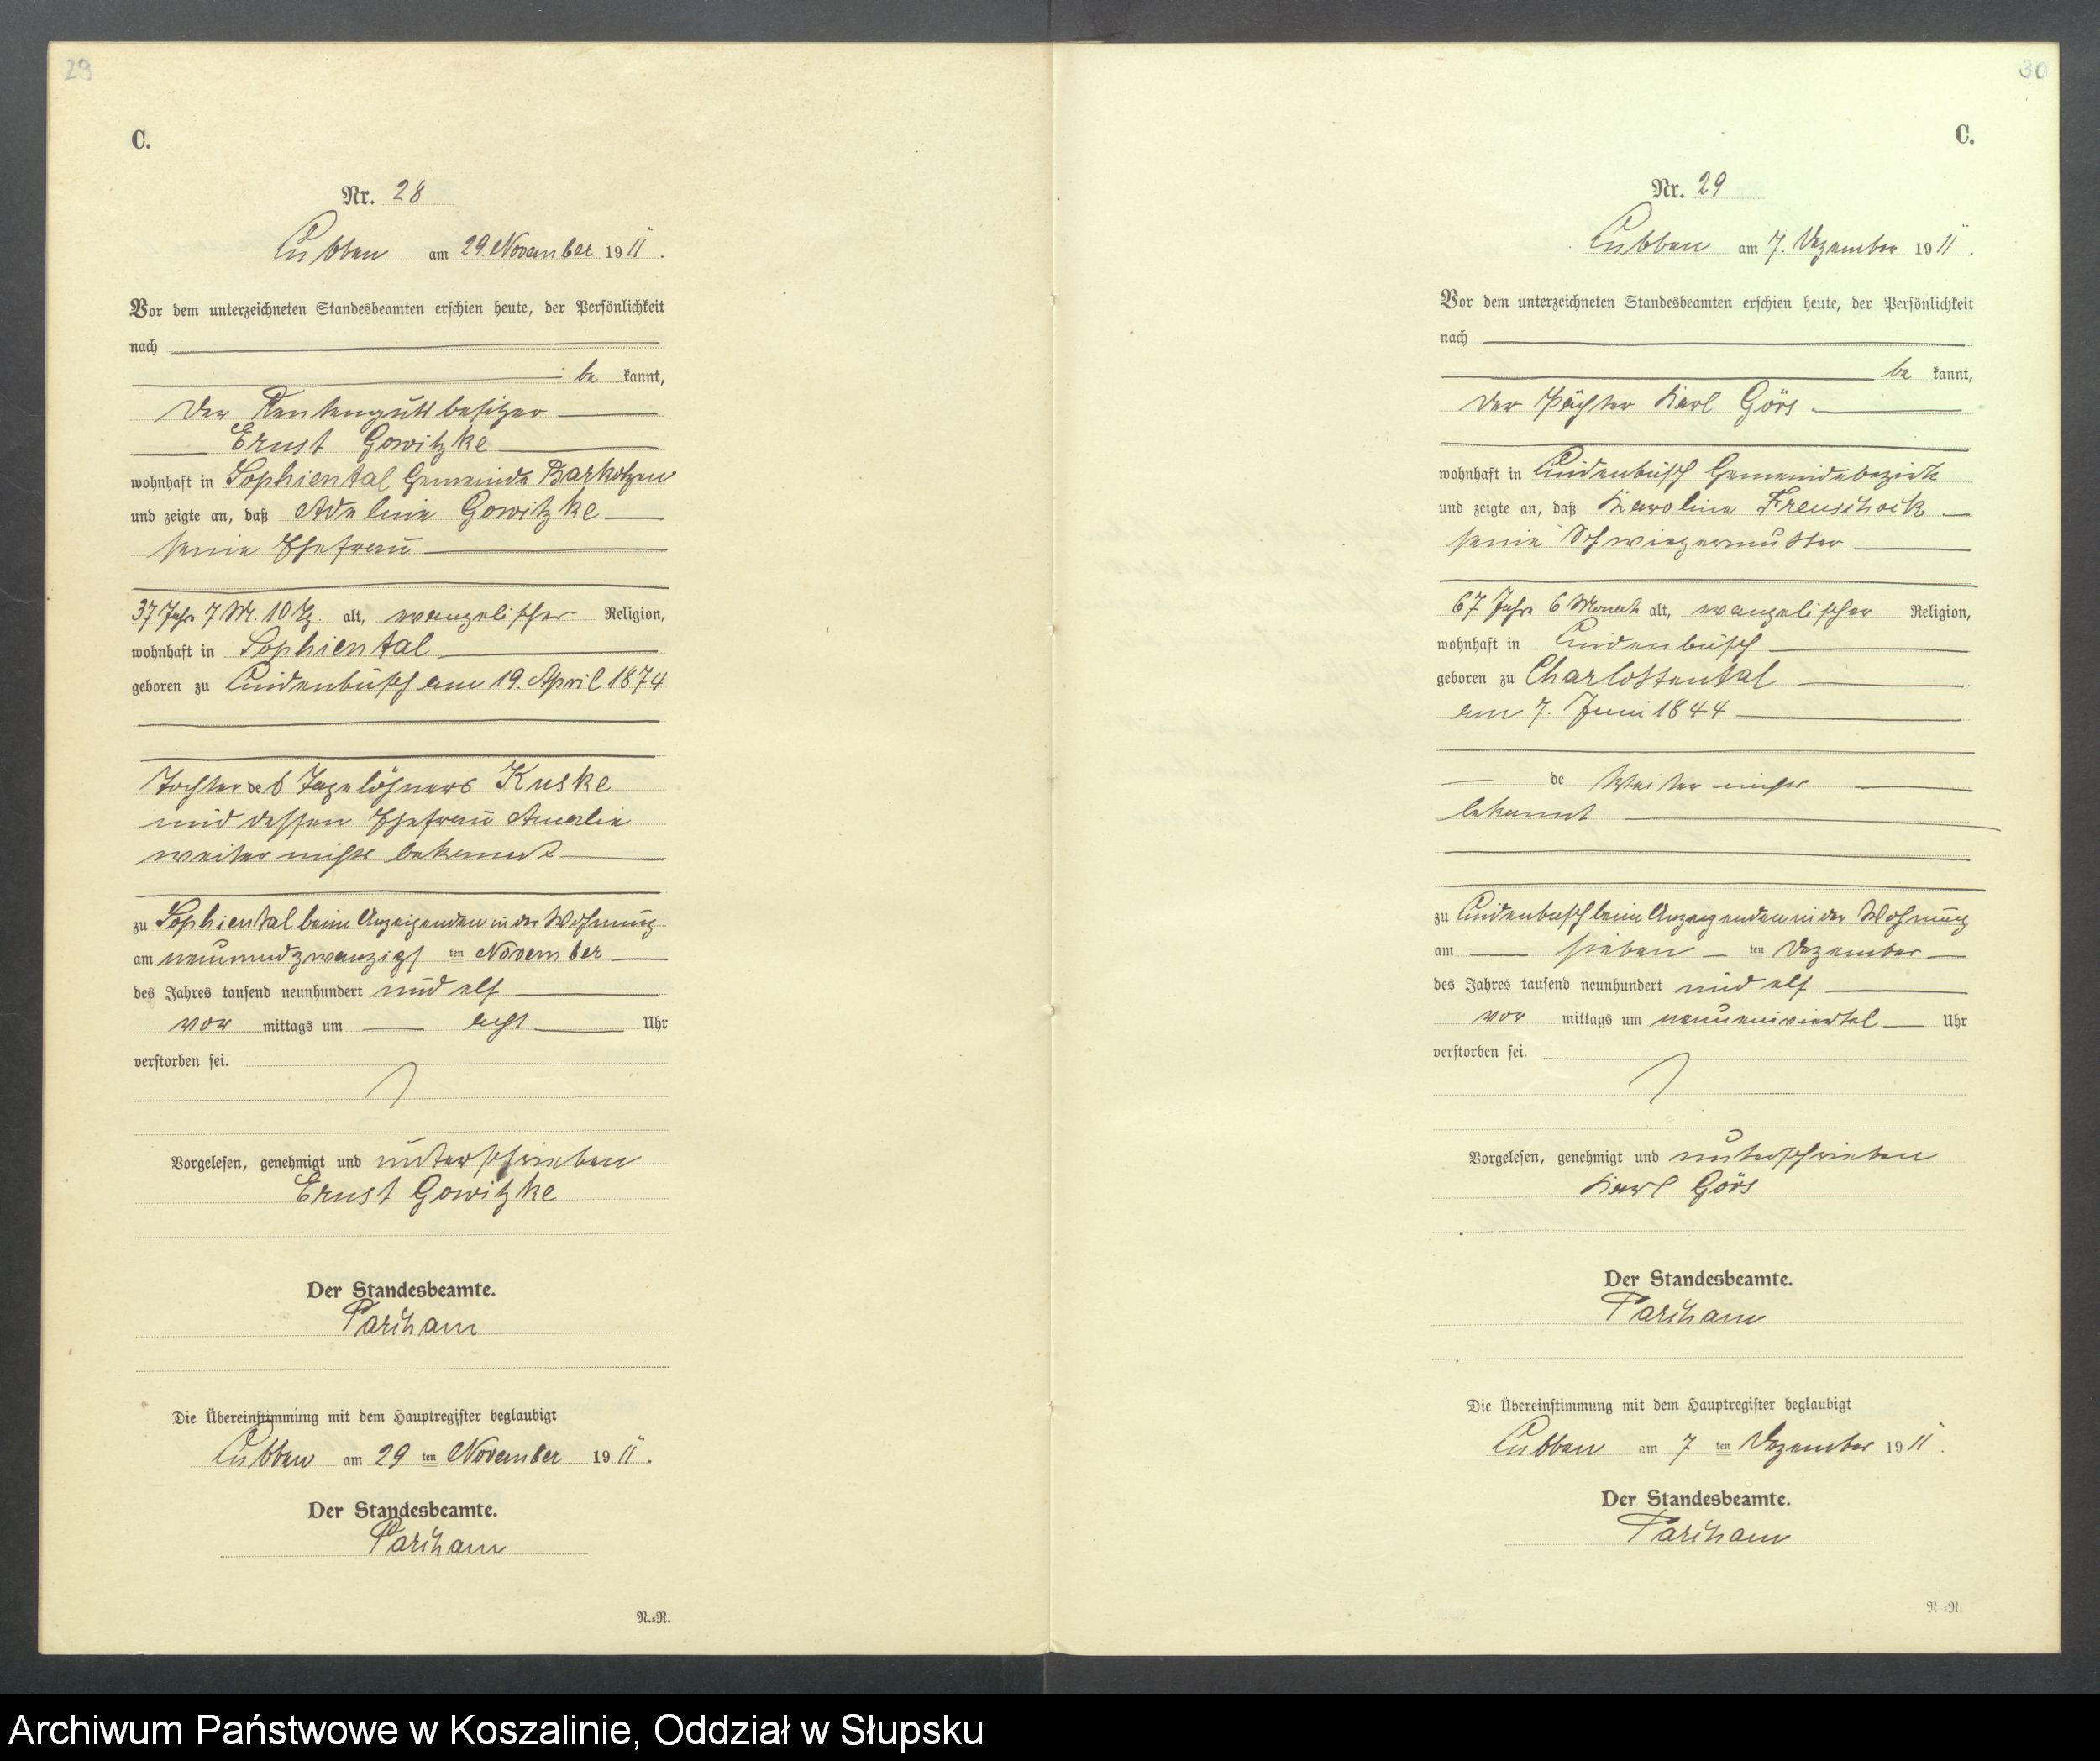 29
C.
Nr. 28
Lubben am 29. November 1911.
Vor dem unterzeichneten Standesbeamten erschien heute, der Persönlichkeit
nach
be kannt,
der Rentengutsbesitzer
Ernst Gowitzke
wohnhaft in Sophiental Gemeinde Barkotzen
und zeigte an, daß Adeline Gowitzke
seine Ehefrau
37 Jahr 7 M. 10 Tg. alt, evangelischer Religion,
wohnhaft in Sophiental
geboren zu Lindenbusch am 19. April 1874
Tochter des Tagelöhners Kuske
und dessen Ehefrau Amalie
weiter nichts bekannt
zu Sophiental beim Anzeigenden in der Wohnung
am neunundzwanzigs ten November
des Jahres tausend neunhundert und elf
vor mittags um acht Uhr
verstorben sei.
Vorgelesen, genehmigt und unterschrieben
Ernst Gowitzke
Der Standesbeamte.
Parcham
Die Übereinstimmung mit dem Hauptregister beglaubigt
Lubben am 29 ten November 1911.
Der Standesbeamte.
Parcham
N.=R.
30
C.
Nr. 29
Lubben am 7. Dezember 1911.
Vor dem unterzeichneten Standesbeamten erschien heute, der Persönlichkeit
nach
be kannt,
der Pächter Karl Görs
wohnhaft in Lindenbusch Gemeindebezirk
und zeigte an, daß Karoline Freuschock
seine Schwiegermutter
67 Jahr 6 Monate alt, evangelischer Religion,
wohnhaft in Lindenbusch
geboren zu Charlottental
am 7. Juni 1844
de Weiter nichts
bekannt
zu Lindenbusch beim Anzeigenden in der Wohnung
am sieben ten Dezember
des Jahres tausend neunhundert und elf
vor mittags um neuneinviertel Uhr
verstorben sei.
Vorgelesen, genehmigt und unterschrieben
Karl Görs
Der Standesbeamte.
Parcham
Die Übereinstimmung mit dem Hauptregister beglaubigt
Lubben am 7 ten Dezember 1911.
Der Standesbeamte.
Parcham
N.=R.
Archiwum Państwowe w Koszalinie, Oddział w Słupsku